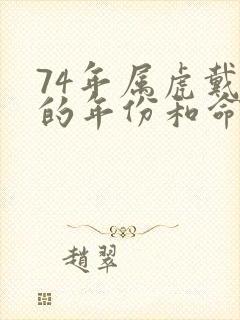 74年属虎戴
的年份和命
趙翠